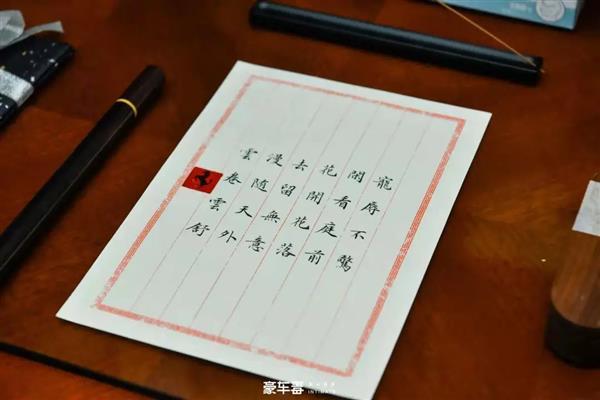 寵辱不驚
閒看庭前
花開花落
去留無意
漫隨天外
雲卷雲舒
豪车毒